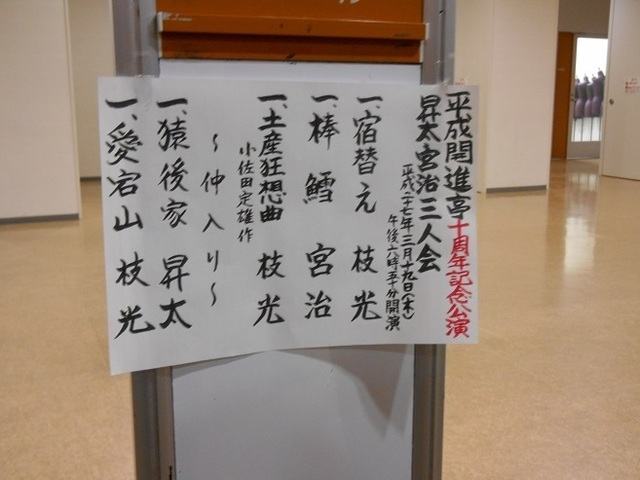 平成開進亭十周年記念公演
昇太宮治二人会
平成二十七年三月十九日(木)
午後六時五十分開演
一、宿替え 枝光
一、棒鱈 宮治
一、土産狂想曲 枝光
小佐田定雄作
～仲入り～
一、猿後家 昇太
一、愛宕山 枝光